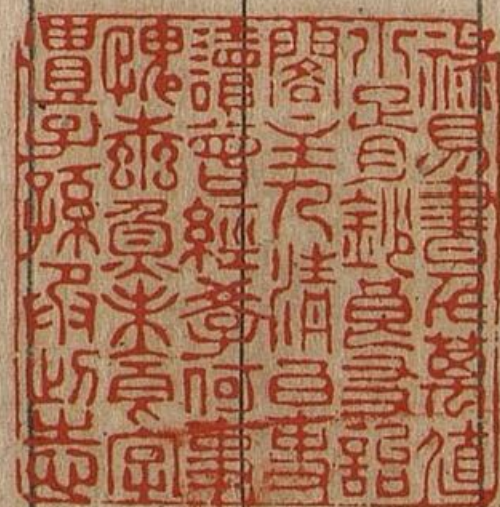 祿易書千萬值
小胥鈔良友詒
閣主人清白吏
讀曾經學何事
愧蠹魚未食字
遺子孫承此志